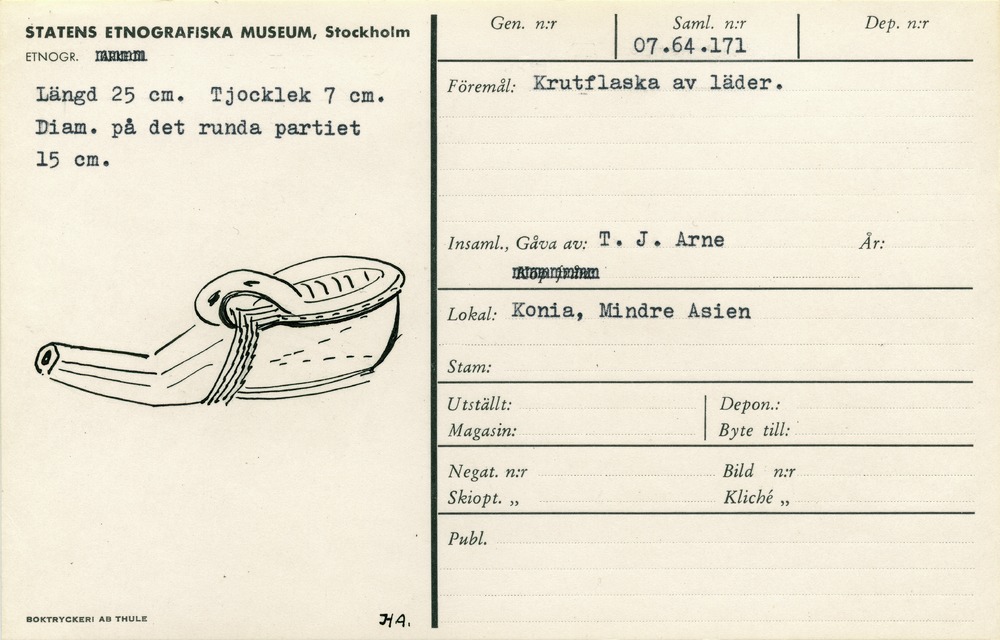 STATENS ETNOGRAFISKA MUSEUM, Stockholm
ETNOGR.
Längd 25 cm. Tjocklek 7 cm.
Diam. på det runda partiet
15 cm.
BOKTRYCKERI AB THULE
HA.
Gen. n:r
Saml. n:r
Dep. n:r
07.64.171
Föremål: Krutflaska av läder.
Insaml., Gåva av: T. J. Arne År:
Lokal: Konia, Mindre Asien
Stam:
Utställt: Depon.:
Magasin: Byte till:
Negat. n:r Bild n:r
Skiopt. „ Kliché „
Publ.